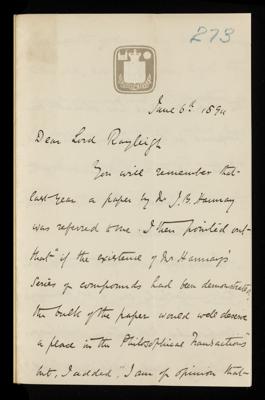 273
June 6th 1894
Dear Lord Rayleigh
You will remember that
last year a paper by Mr J. B. Hannay
was referred to me. I then pointed out
that "if the existence of Mr Hannay's
series of compounds had been demonstrated,
the bulk of the paper would well deserve
a place in the Philosophical Transactions"
but, I added, "I am of opinion that